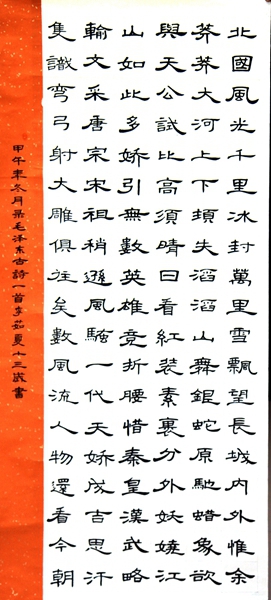 北國風光千里冰封萬里雪飄望長城内外惟余
莽莽大河上下頓失滔滔山舞銀蛇原馳蜡象欲
與天公試比高須晴日看紅装素裹分外妖嬈江
山如此多嬌引無數英雄竞折腰惜秦皇漢武略
輸文采唐宗宋祖稍遜風騷一代天嬌成吉思汗
隻識彎弓射大雕俱往矣數風流人物還看今朝
甲午年冬月录毛泽东古詩一首李茹夏十三歲書